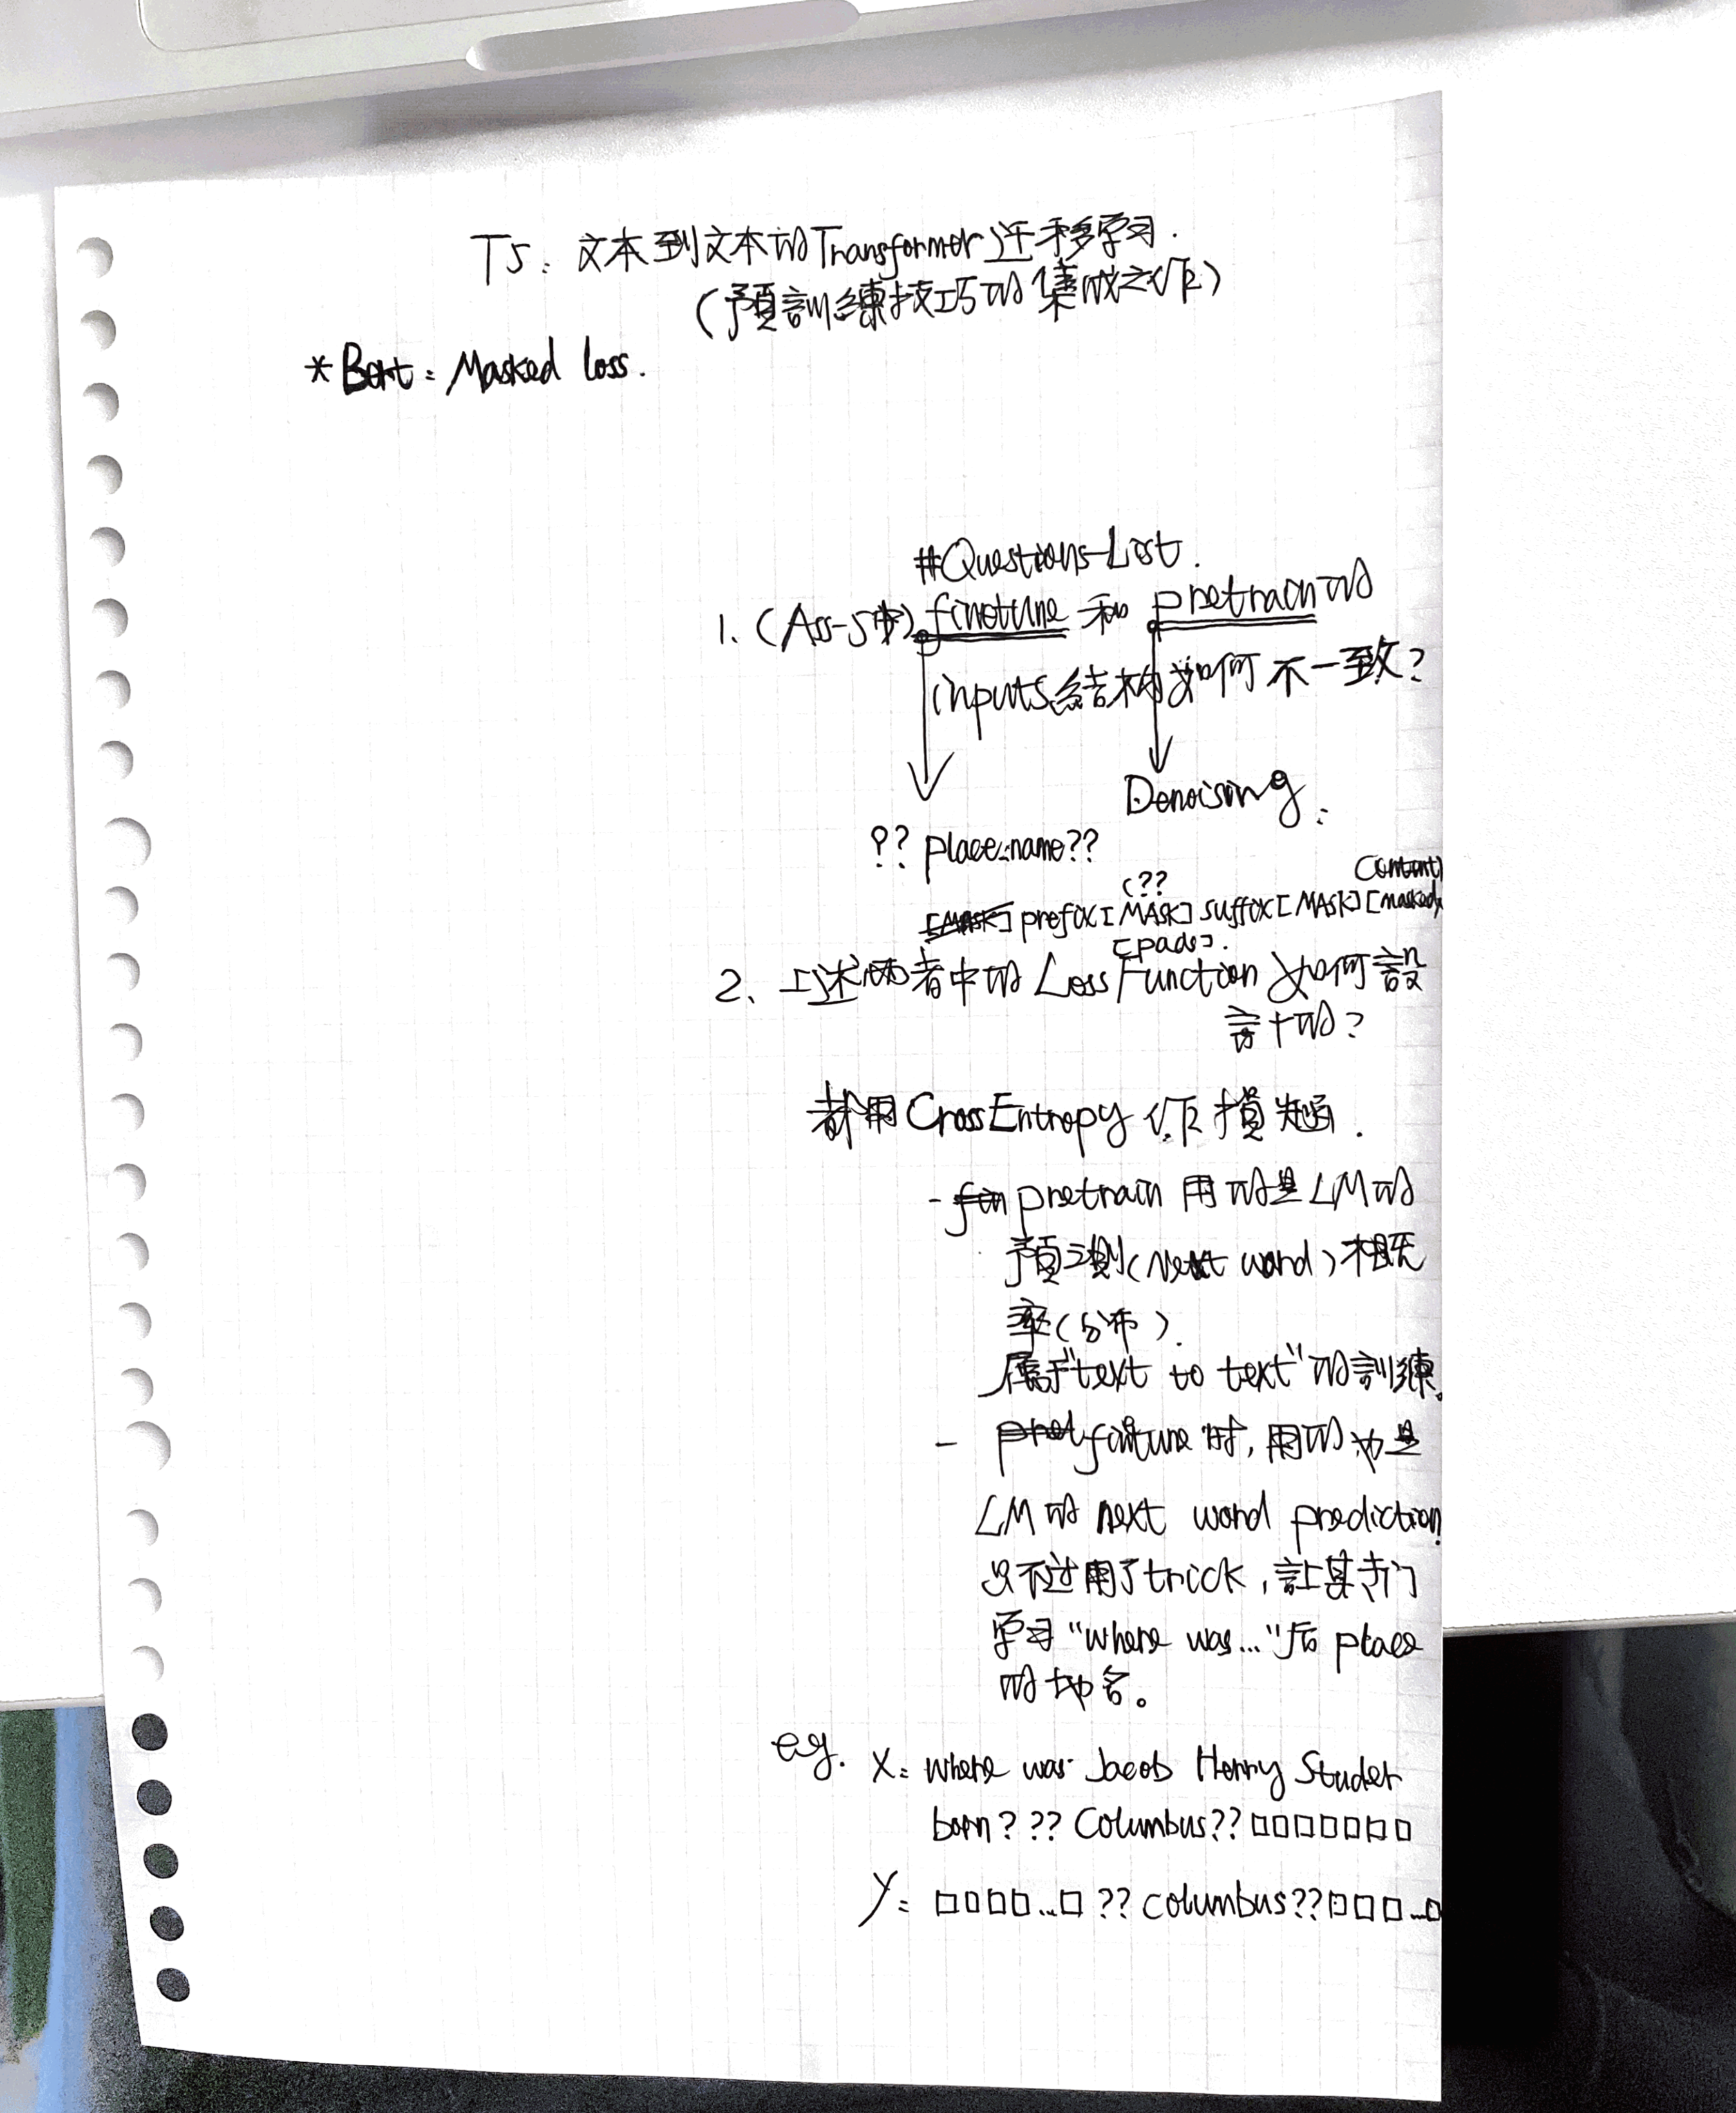 T5: 文本到文本的Transformer迁移学习.
(預訓練技巧的集成之作)
*Bert: Masked loss.
#Questions-List.
1. (Ass-5中) finetune 和 pretrain的
inputs結构如何不一致?
Denoising:
?? place-name??
content]
(??
prefix[MASK] suffix[MASK][masked
[pads].
2、上述兩者中的 Loss Function 如何設
計的?
都用CrossEntropy作損失函.
- pretrain 用的是LM的
預測(Next word)概
率(分布).
属于"text to text"的訓練。
- 时, 用的也是
LM的 next word prediction
只不过用了trick, 讓其专门
学习"where was..."后 place
的地名。
eg. X: where was Jacob Henry Studer
born? ?? Columbus??□□□□□□□
Y: □□□□...□ ?? columbus??□□□...□